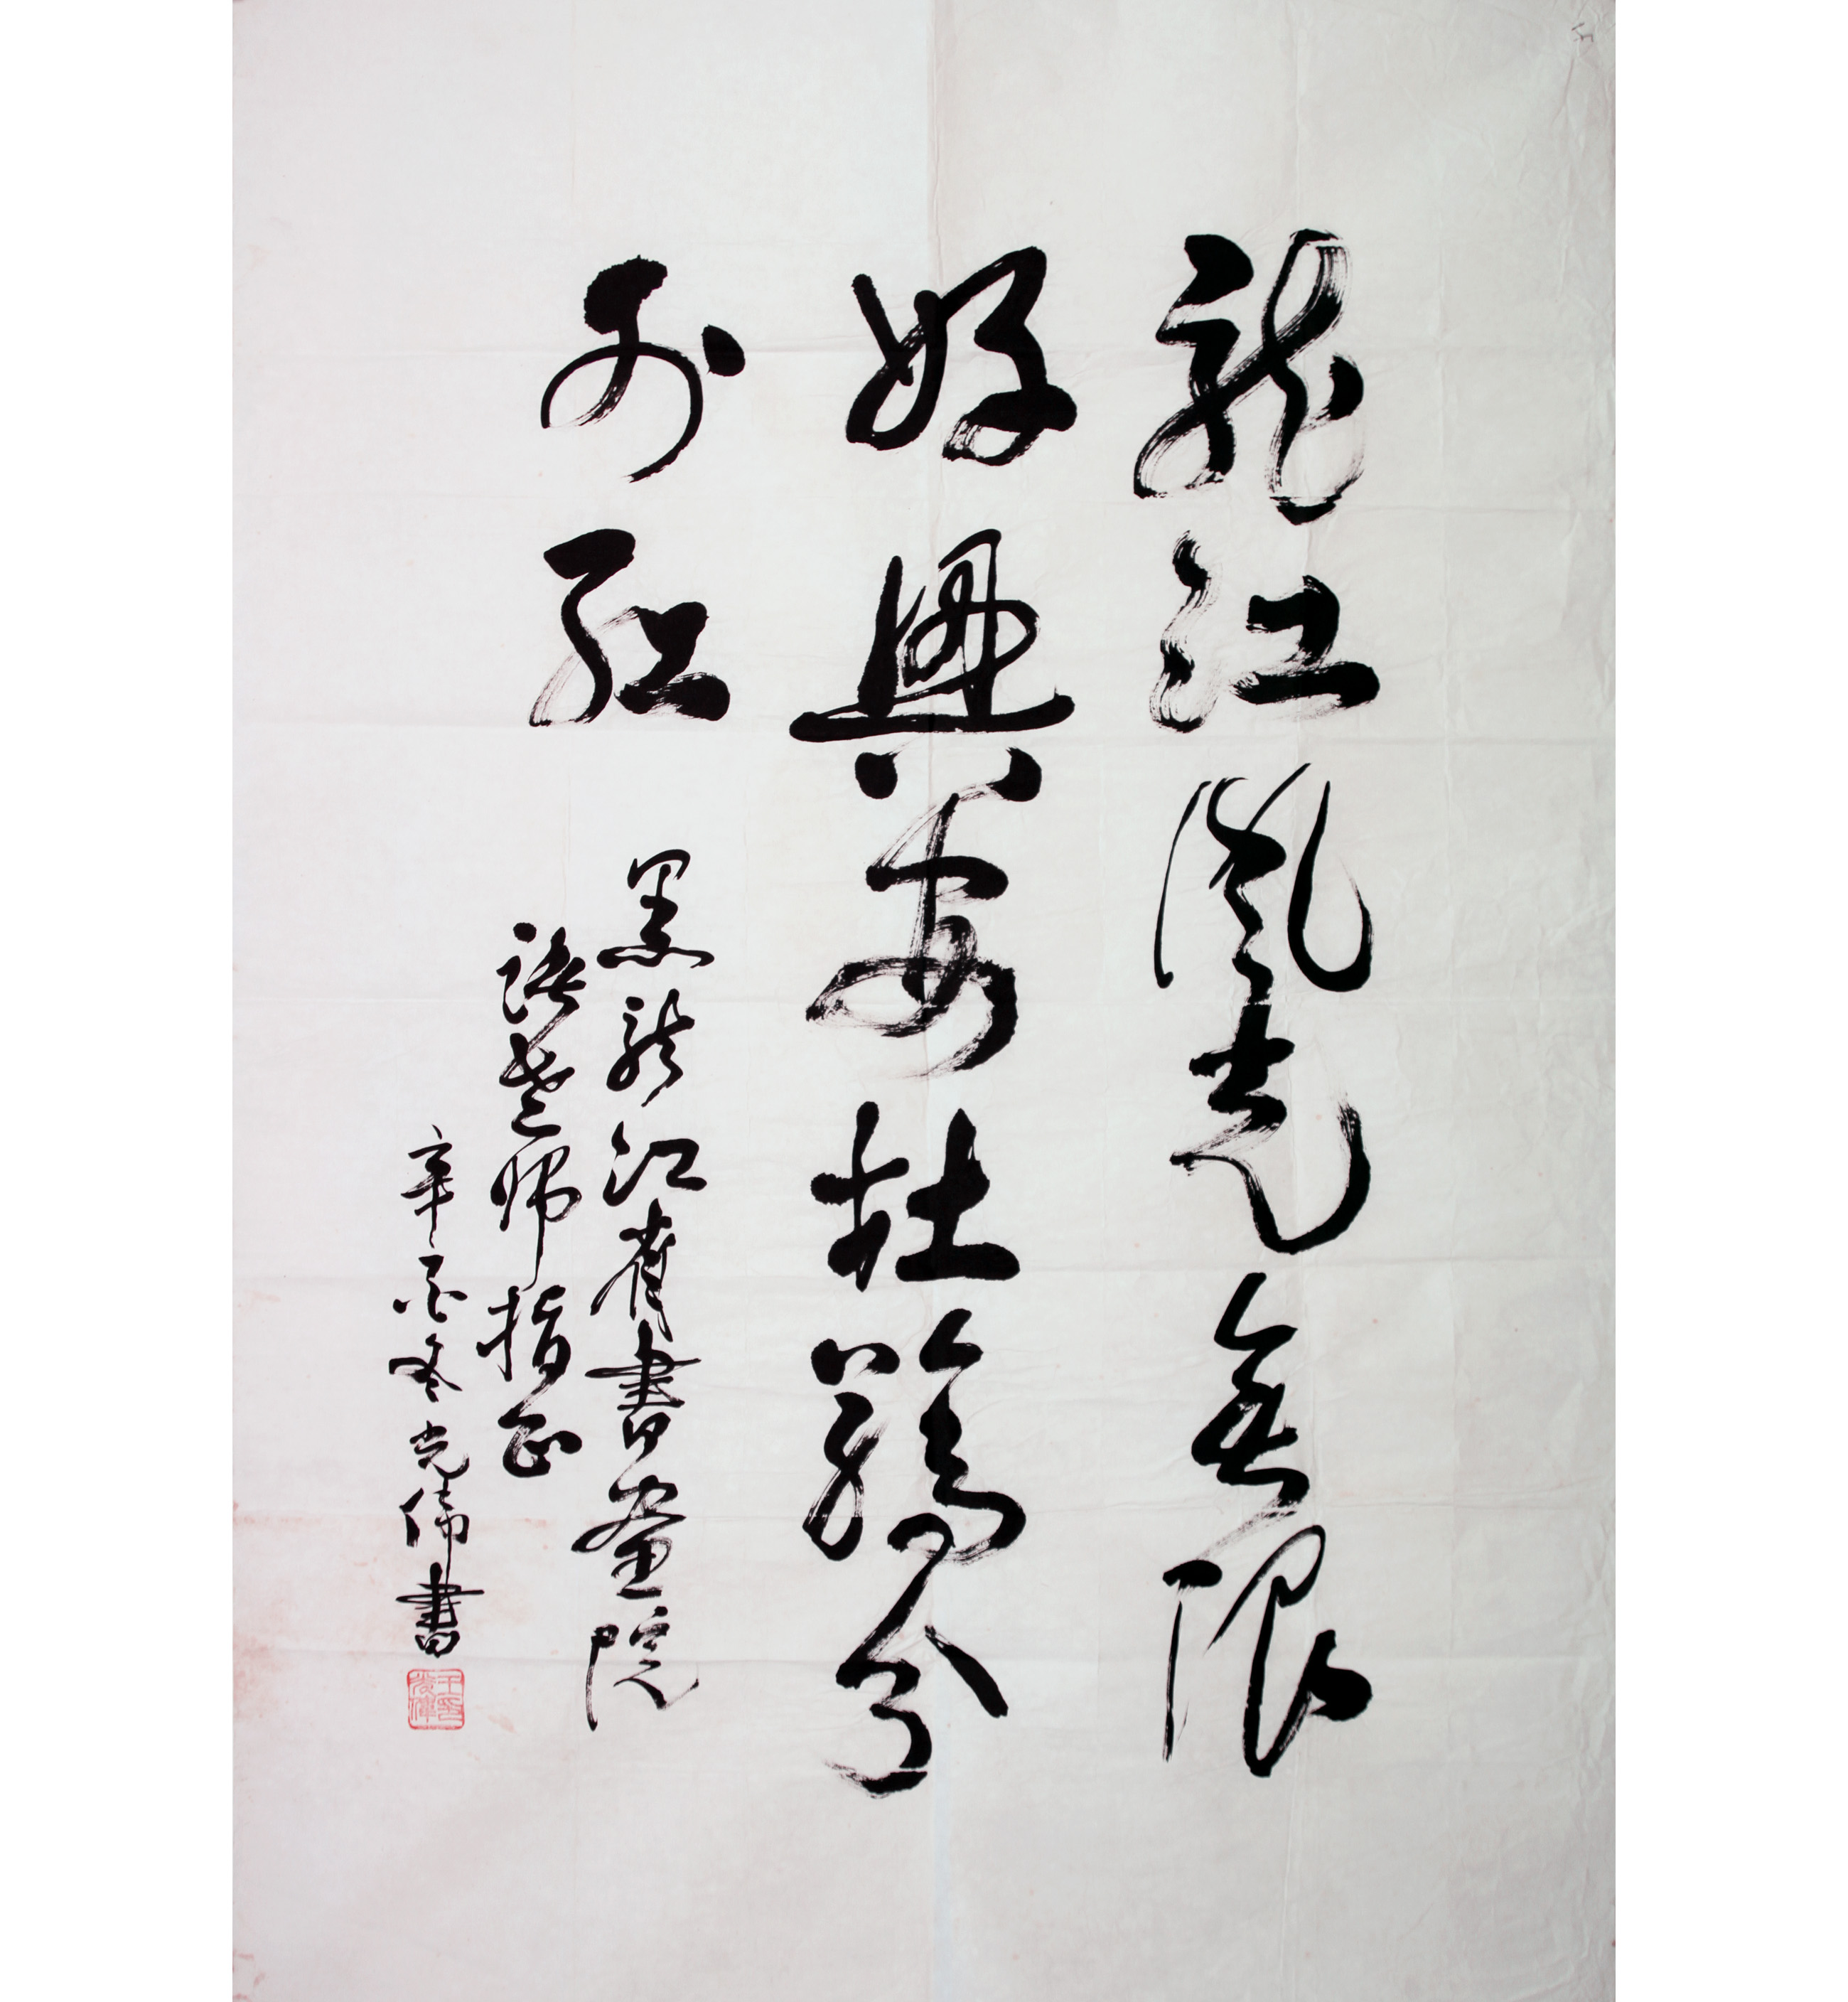 龍江風光無限
好興安杜鵑分
外紅
黑龍江省書畫院
諸老師指正
辛酉冬光偉書
王印光偉